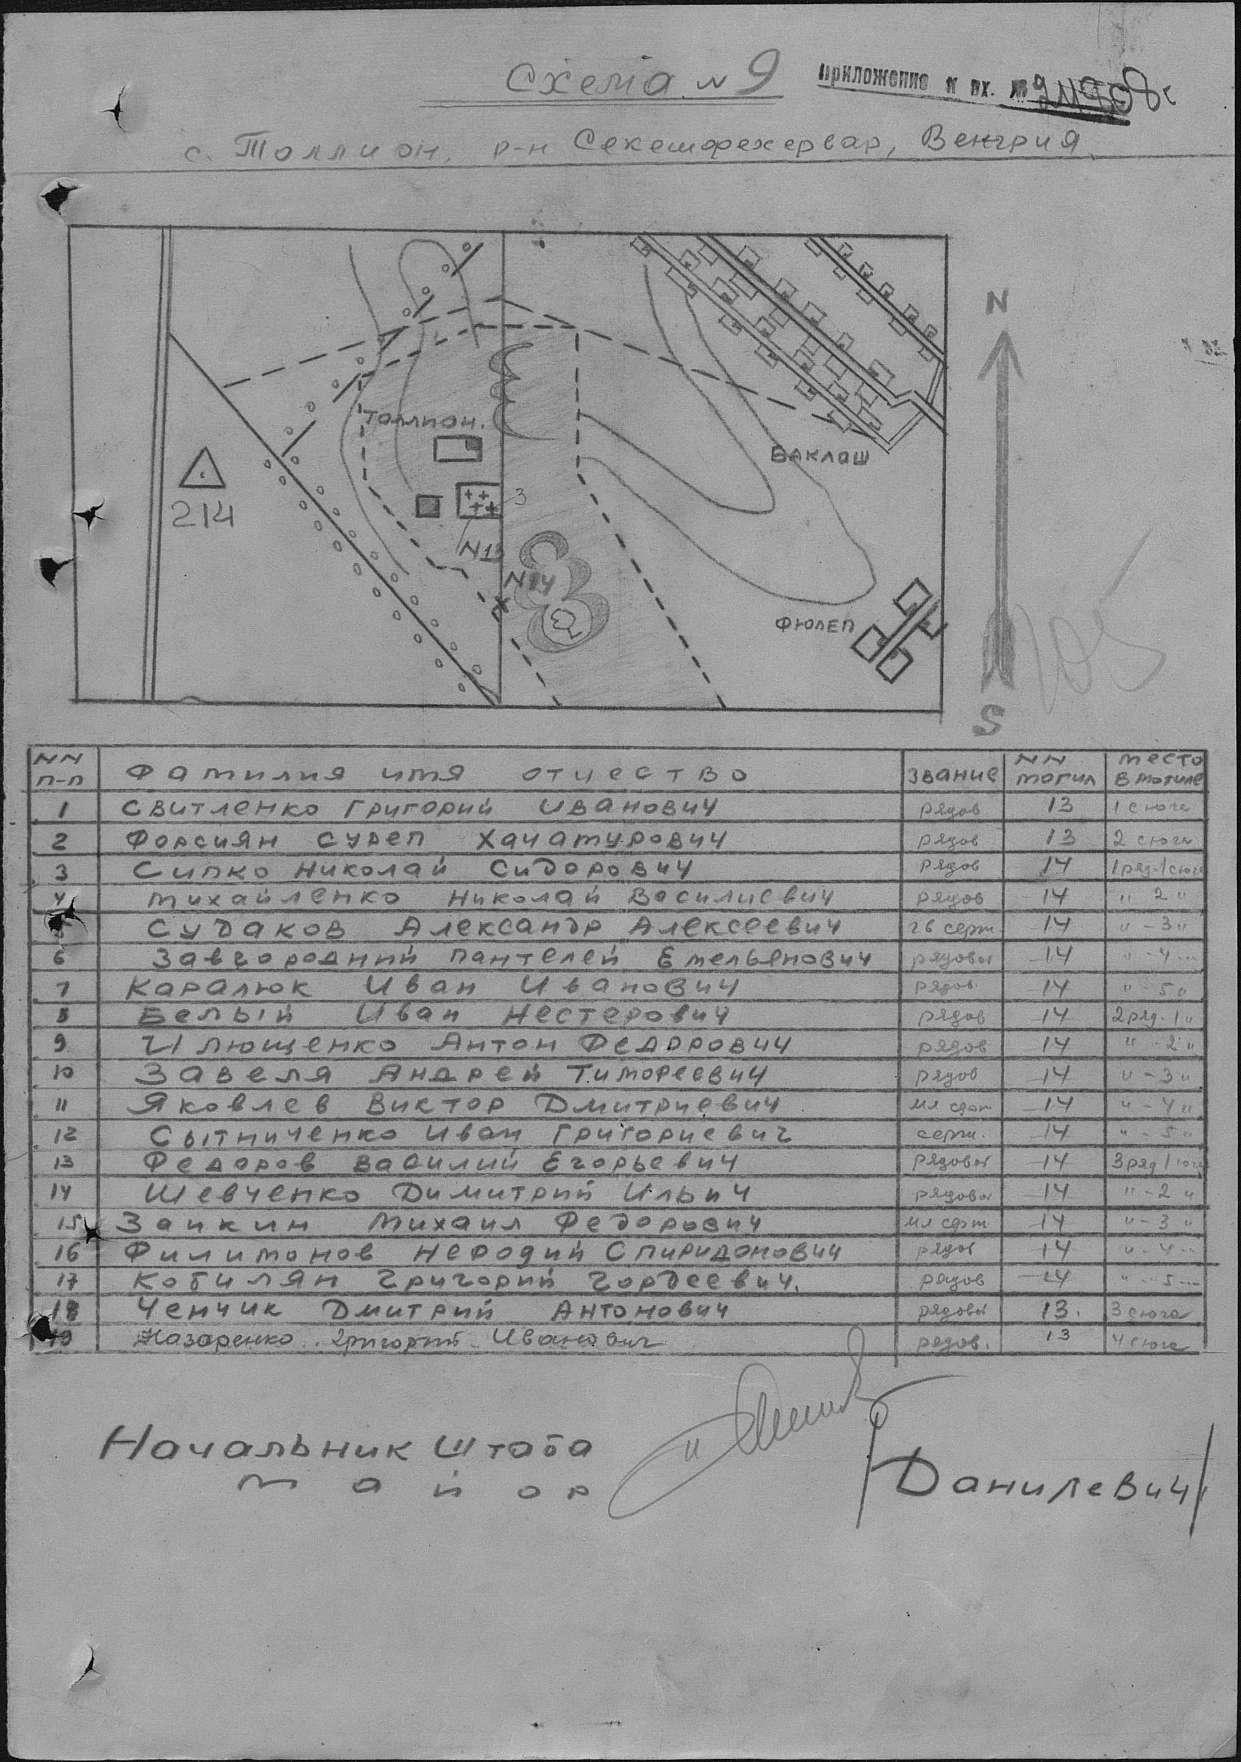 Схема № 9
приложение к вх. №
с. Толлион, р-н Секешфехервар, Венгрия.
N
Толлион.
БАКЛАШ
214
3
N13
N14
ФЮЛЕП
S
NN п-п Фамилия имя отчество звание NN могил место в могиле
1 Свитленко Григорий Иванович рядов 13 1 с юга
2 Форсиян Сурен Хачатурович рядов 13 2 с юга
3 Сипко Николай Сидорович рядов 14 1 ряд 1 с юга
4 Михайленко Николай Василиевич рядов 14 " 2 "
Судаков Александр Алексеевич гв серж 14 " - 3 "
6 Завгородний Пантелей Емельянович рядовы 14 " - 4 -
7 Каралюк Иван Иванович рядов 14 " - 5 "
8 Белый Иван Нестерович рядов 14 2 ряд. 1 "
9 Илющенко Антон Федорович рядов 14 " - 2 "
10 Завеля Андрей Тимофеевич рядов 14 " - 3 "
11 Яковлев Виктор Дмитриевич мл серж 14 " - 4 "
12 Сытниченко Иван Григориевич серж. 14 " - 5 "
13 Федоров Василий Егорьевич рядовы 14 3 ряд 1 юга
14 Шевченко Димитрий Ильич рядовы 14 " - 2 "
15 Заикин Михаил Федорович мл серж 14 " - 3 "
16 Филимонов Неродий Спиридонович рядов 14 " - 4 -
17 Кобилян Григорий Гордеевич. рядов 14 " - 5 -
18 Ченчик Дмитрий Антонович рядовы 13. 3 с юга
19 Назаренко Григорий Иванович рядов. 13 4 с юга
Начальник штаба
майор /Данилевич/